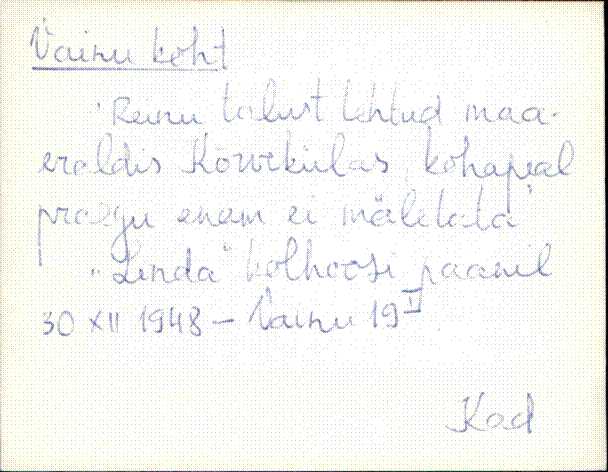 Vainu koht
Reinu talust tehtud maa-
eraldis Kõrvekülas, kohapeal
praegu enam ei mäletata
"Linda" kolhoosi plaanil
30 XII 1948 – Vainu 19 II
Kad